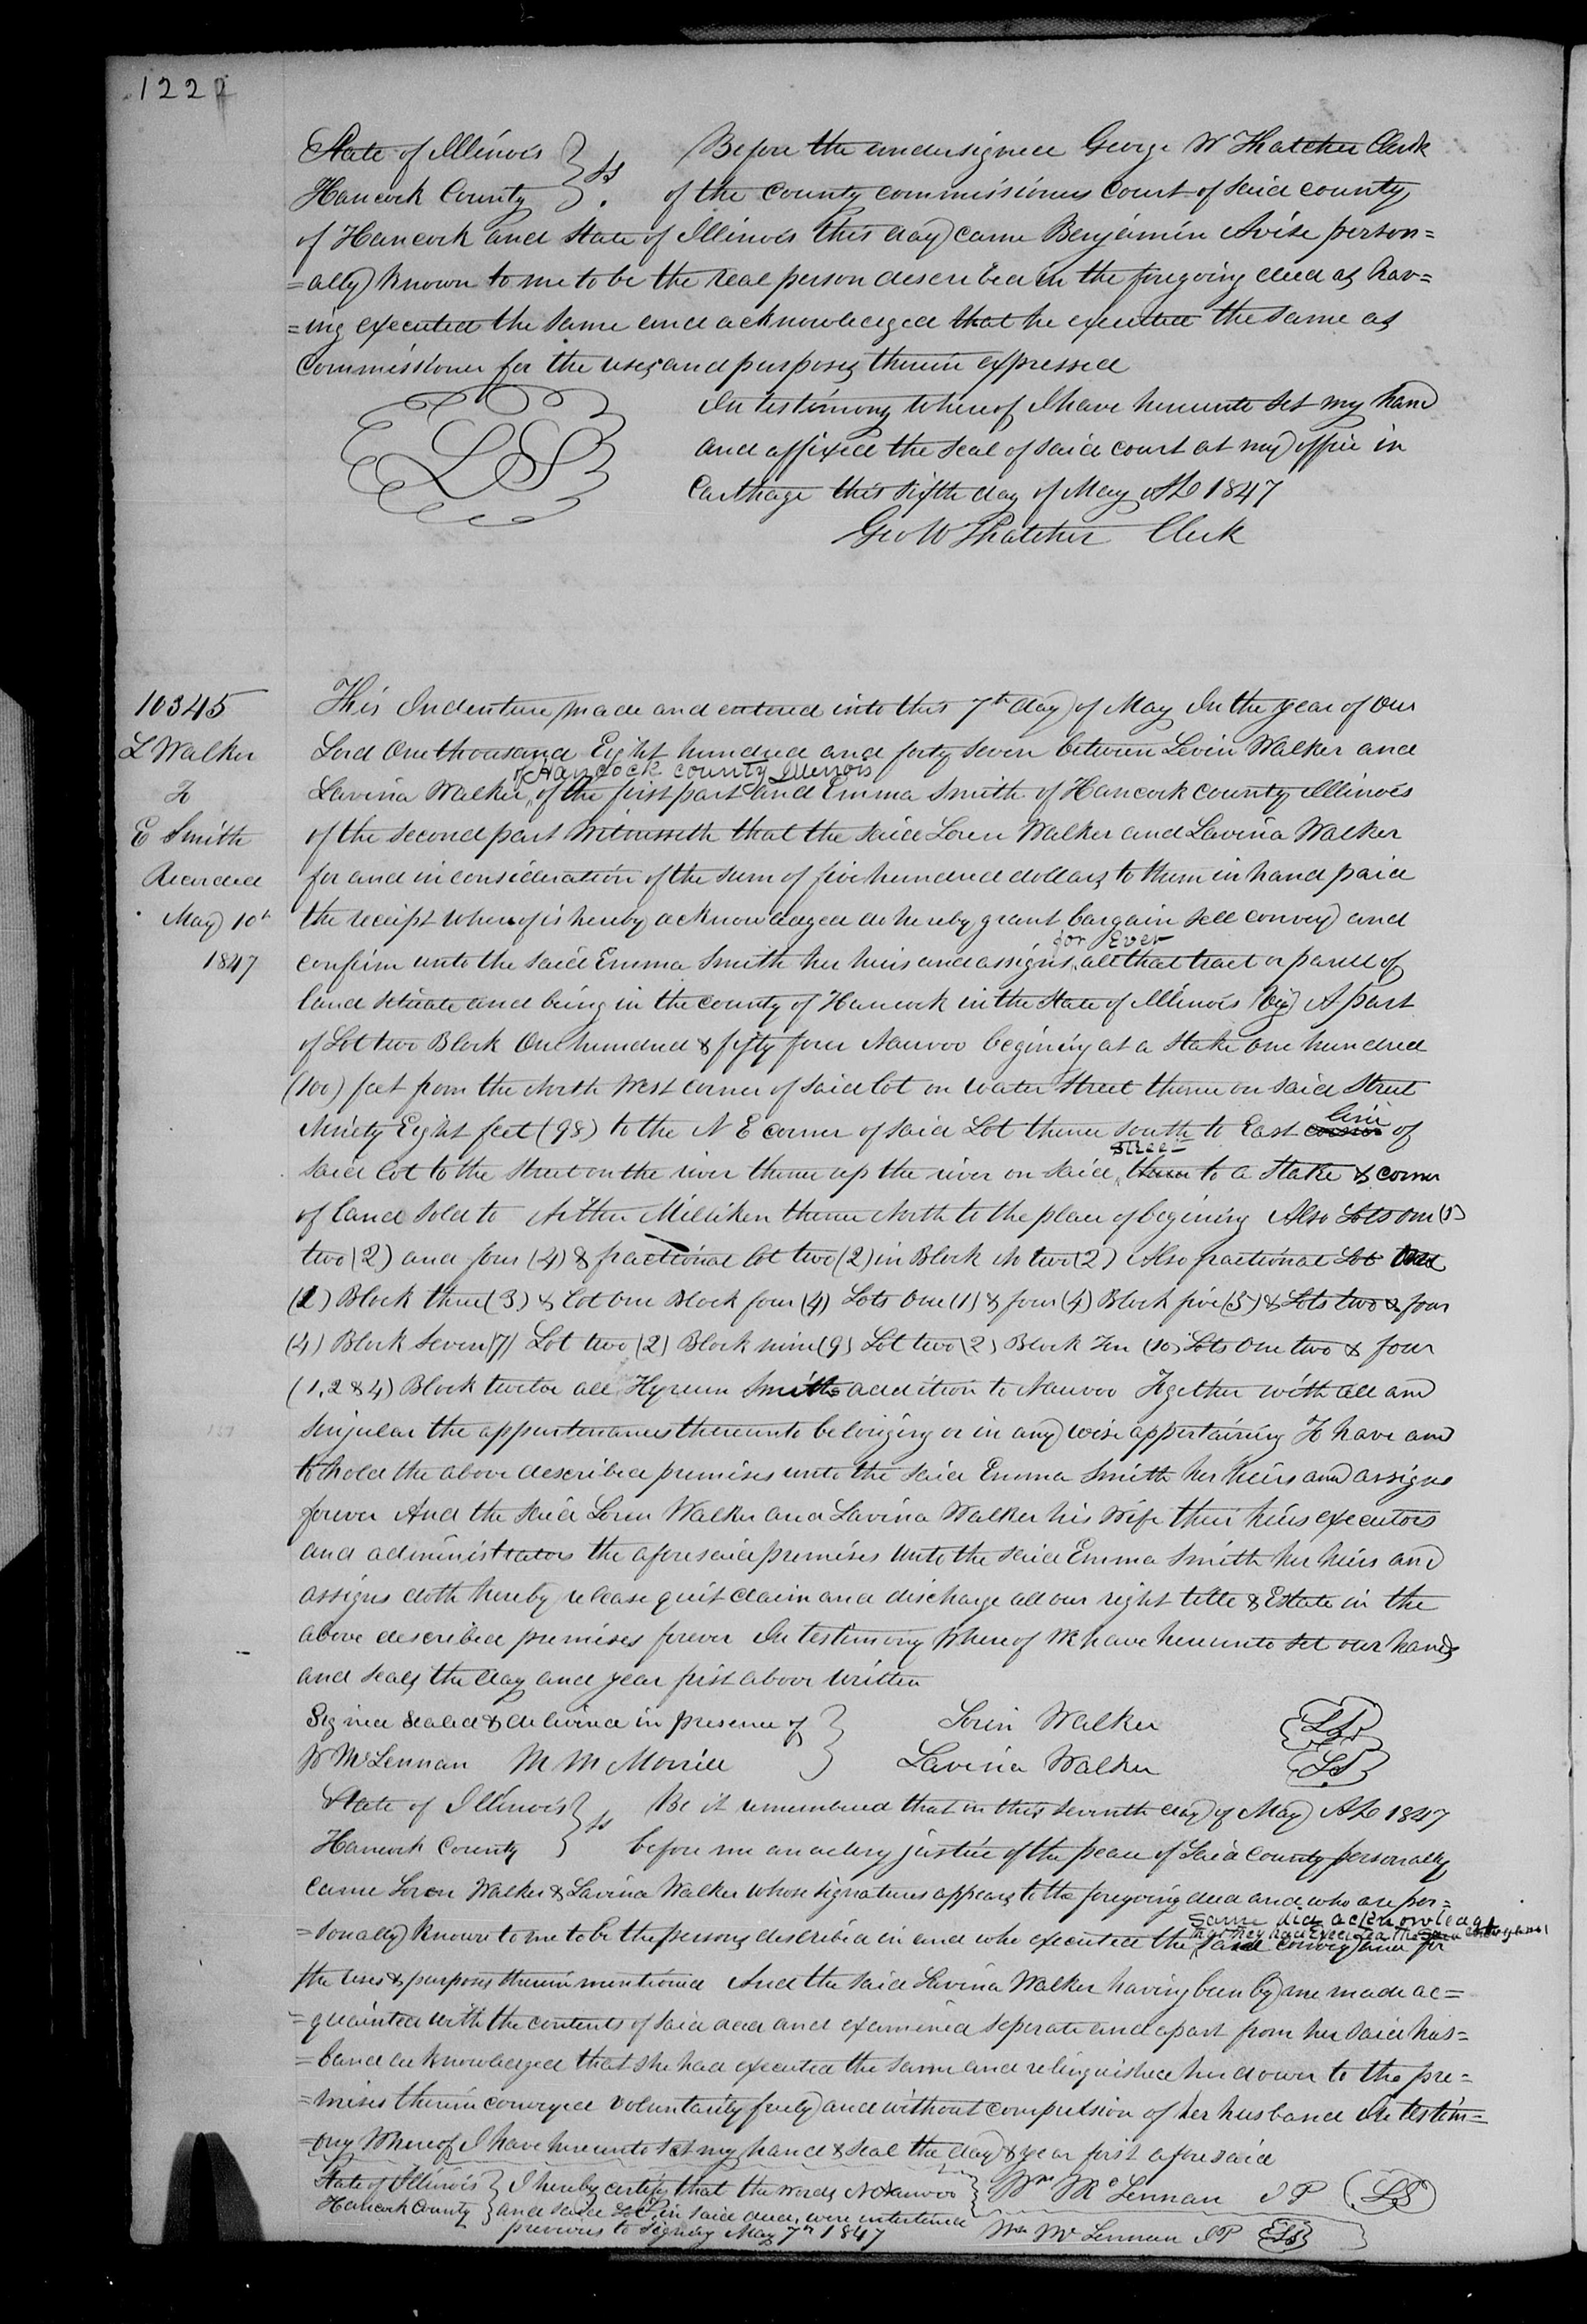 122
State of Illinois } ss Before the undersigned George W Thatcher Clerk
Hancock County } . of the county commissioners court of said county
of Hancock and State of Illinois this day came Benjamin Avise person=
=ally known to me to be the real person described in the foregoing deed as hav=
=ing executed the same and acknowledged that he executed the same as
commissioner for the uses and purposes therein expressed
LS
In testimony whereof I have hereunto set my hand
and affixed the seal of said court at my office in
Carthage this sixth day of May AD 1847
Geo W Thatcher Clerk
10345
L Walker
To
E Smith
Recorded
May 10th
1847
This Indenture made and entered into this 7th day of May In the year of our
Lord One thousand Eight hundred and forty seven between Lorin Walker and
of Hancock county Illinois
Lavina Walker of the first part and Emma Smith of Hancock county Illinois
of the second part Witnesseth that the said Loren Walker and Lavina Walker
for and in consideration of the sum of five hundred dollars to them in hand paid
the receipt whereof is hereby acknowledged do hereby grant bargain sell convey and
for Ever
confirm unto the said Emma Smith her heirs and assigns all that tract or parcel of
land situate and being in the county of Hancock in the State of Illinois (viz) A part
of Lot two Block One hundred & fifty four Nauvoo begining at a stake one hundred
(100) feet from the North West corner of said lot on water street thence on said street
line
Ninety Eight feet (98) to the N E corner of said Lot thence south to East corner of
street
said lot to the street on the river thence up the river on said thence to a stake & corner
of land sold to Arthur Milliken thence North to the place of begining Also Lots One (1)
two (2) and four (4) & fractional lot two (2) in Block No two (2) Also fractional Lot
(1) Block three (3) & lot one Block four (4) Lots One (1) & four (4) Block five (5) & Lots two & four
(4) Block Seven (7) Lot two (2) Block nine (9) Lot two (2) Block Ten (10) Lots One two & four
(1, 2 & 4) Block twelve all Hyrum Smiths addition to Nauvoo Together with all and
singular the appurtenances thereunto belonging or in any wise appertaining To have and
to hold the above described premises unto the said Emma Smith her heirs and assigns
forever And the said Loren Walker and Lavina Walker his Wife their heirs executors
and administrators the aforesaid premises unto the said Emma Smith her heirs and
assigns doth hereby release quit claim and discharge all our right title & Estate in the
above described premises forever In testimony Whereof We have hereunto set our hands
and seals the day and year first above written
Signed sealed & delivered in presence of } Lorin Walker LS
W McLennan M M Morrill } Lavina Walker LS
State of Illinois } ss Be it remembered that on this seventh day of May AD 1847
Hancock County } before me an acting justice of the peace of said county personally
came Loren Walker & Lavina Walker whose signatures appears to the foregoing deed and who are per=
same did acknowledge
that they had executed the said conveyance
=sonally known to me to be the persons described in and who executed the said conveyance for
the uses & purposes therein mentioned And the said Lavina Walker having been by me made ac=
=quainted with the contents of said deed and examined seperate and apart from her said hus=
=band acknowledged that she had executed the same and relinquished her dower to the pre=
=mises therein conveyed voluntarily freely and without compulsion of her husband In testim=
=ony Whereof I have hereunto set my hand & seal the day & year first aforesaid
Wm McLennan J P LS
State of Illinois } I hereby certify that the words Nauvoo
Hancock County } and said Lot in said deed, were interlined
previous to signing May 7th 1847 Wm McLennan J P LS